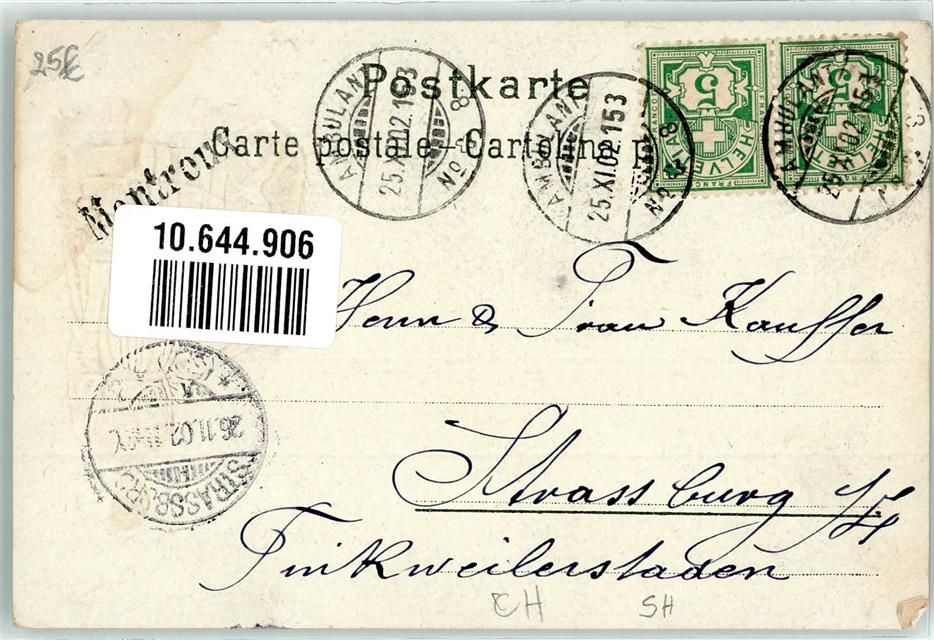 25£
Postkarte
Carte postale - Cartolina p
Montreux
AMBULANT No 8
25.XI.02.153
AMBULANT No 8
25.XI.02.153
AMBULANT
25.XI.02.153
5
FRANCO
HELVETIA
FRANCO
5
HELVETIA
10.644.906
Herrn & Frau Kauffer
Strassburg i/E
Finkweilerstaden
STRASSBURG
26.11.02.
CH
SH